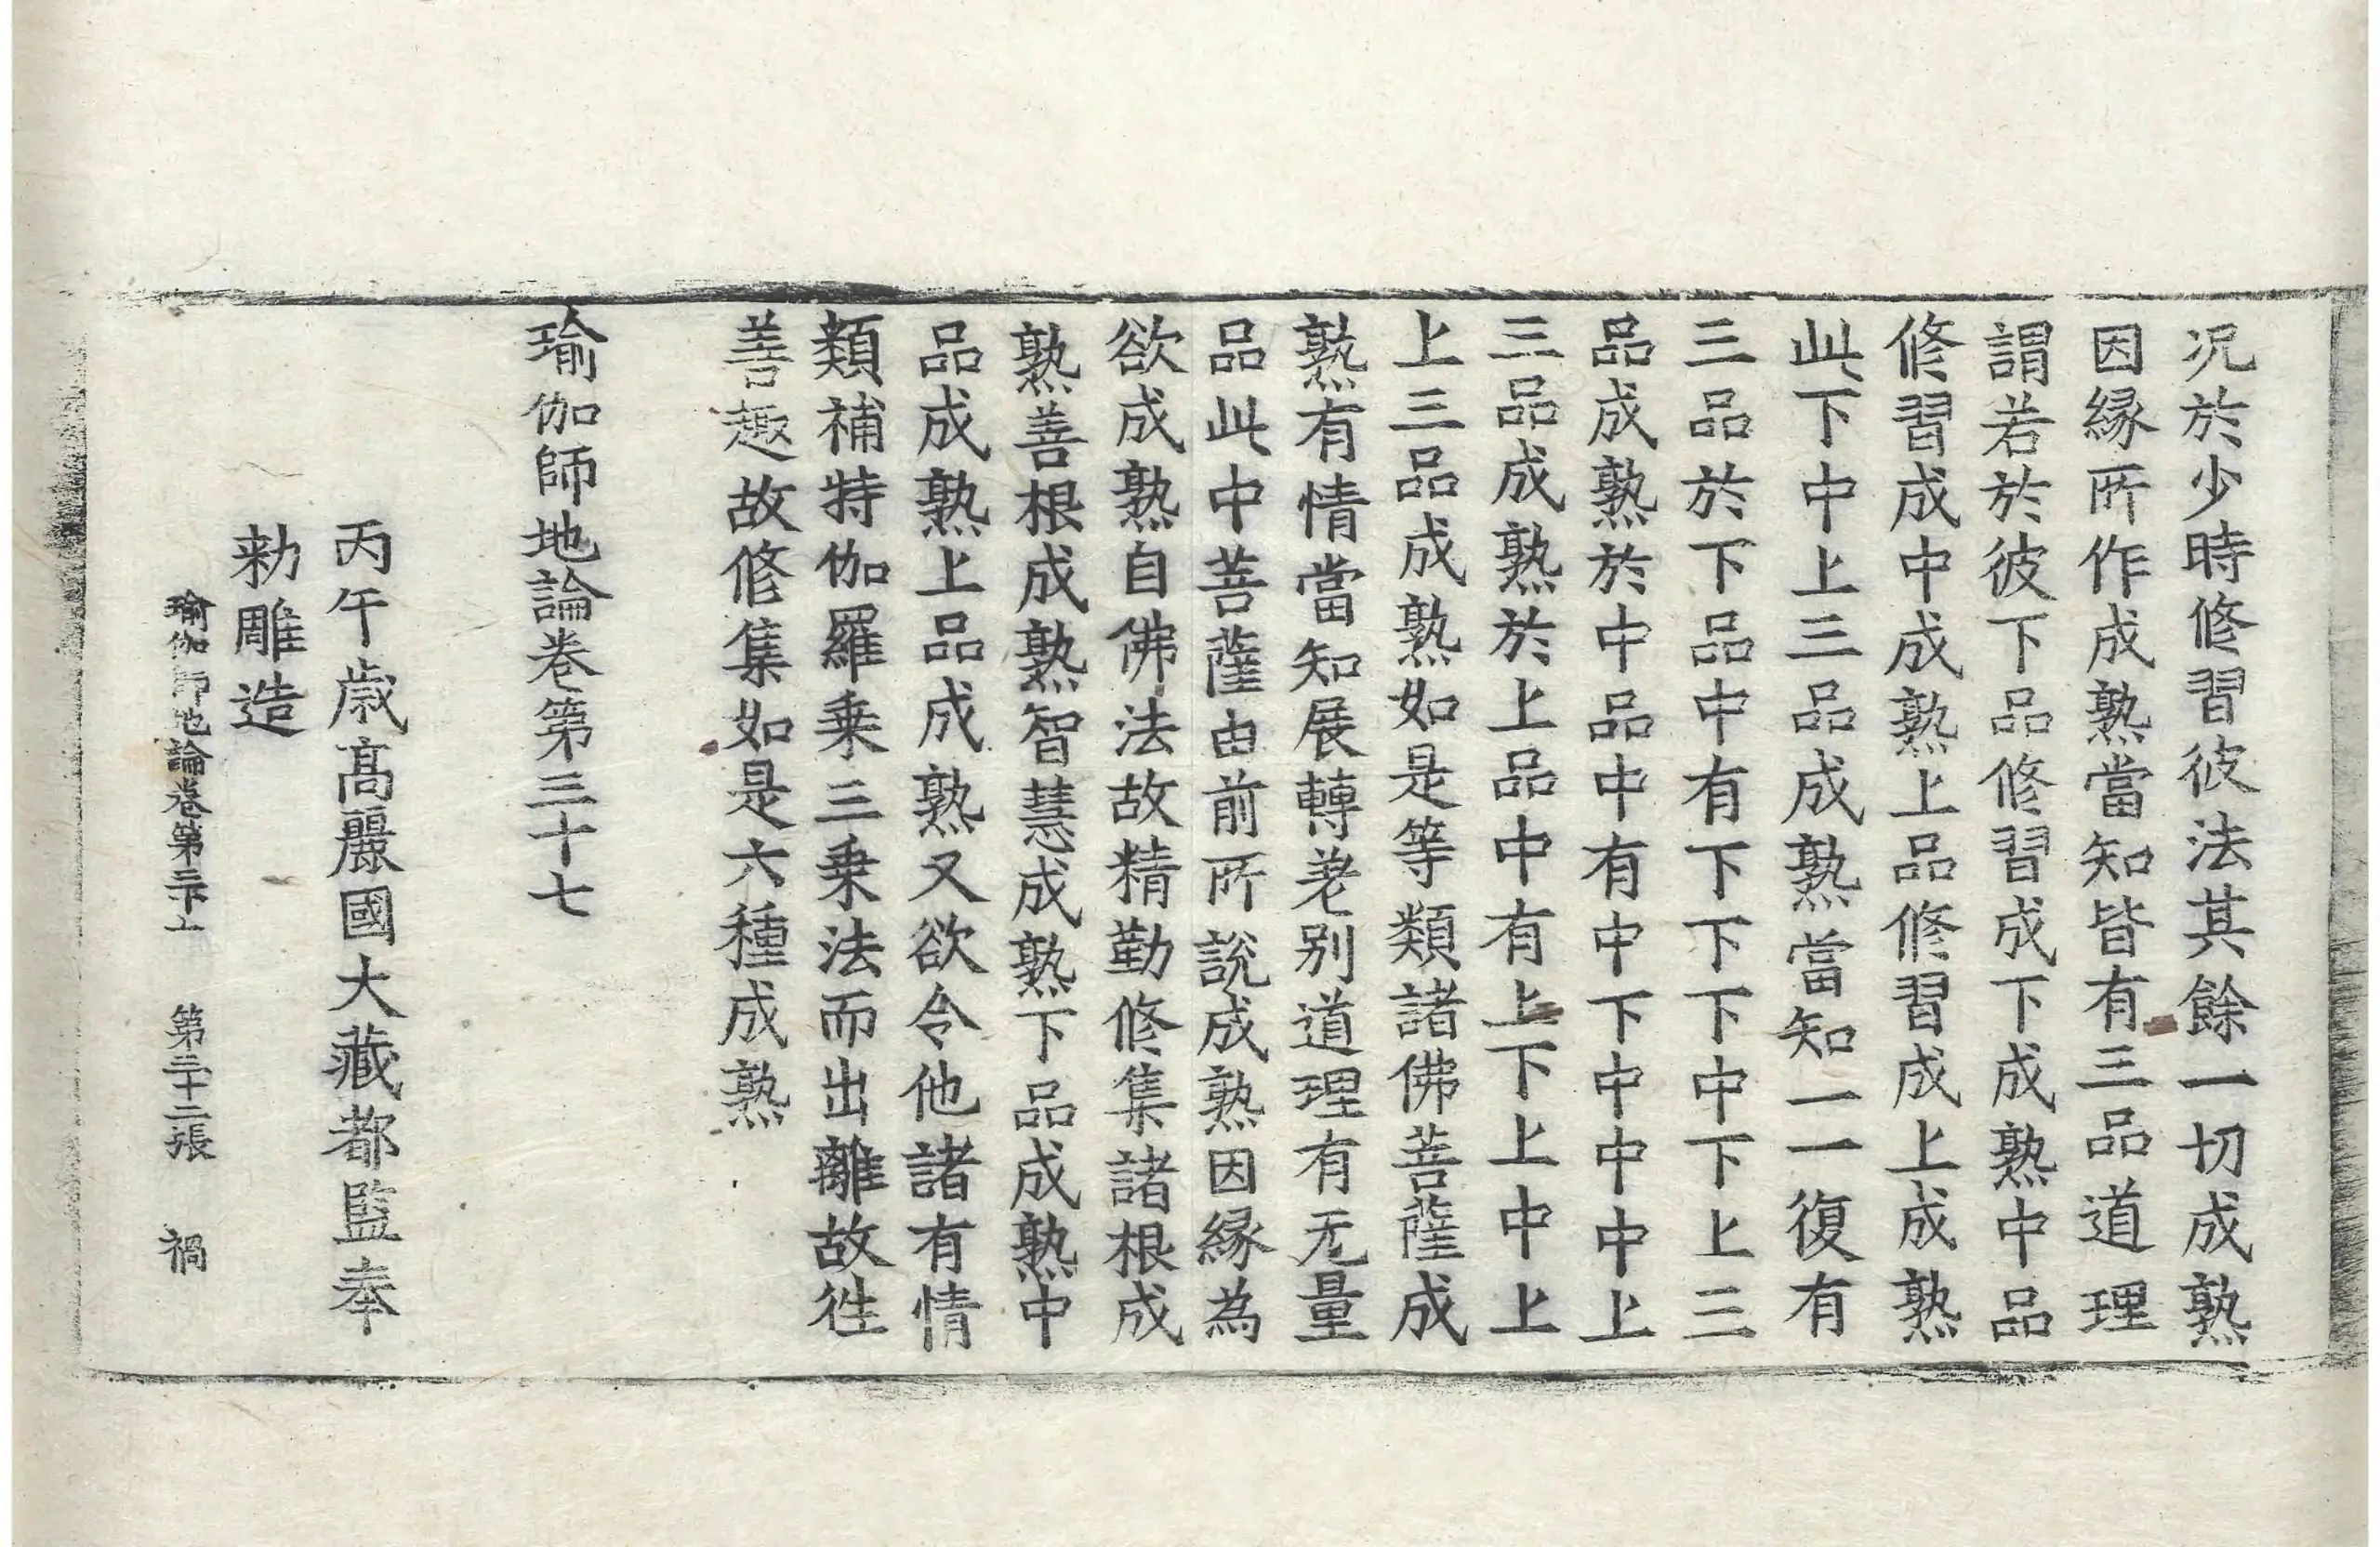 况於少時修習彼法其餘一切成熟
因縁所作成熟當知皆有三品道理
謂若於彼下品修習成下成熟中品
修習成中成熟上品修習成上成熟
此下中上三品成熟當知一一復有
三品於下品中有下下下中下上三
品成熟於中品中有中下中中中上
三品成熟於上品中有上下上中上
上三品成熟如是等類諸佛菩薩成
熟有情當知展轉差别道理有无量
品此中菩薩由前所說成熟因縁為
欲成熟自佛法故精勤修集諸根成
熟善根成熟智慧成熟下品成熟中
品成熟上品成熟又欲令他諸有情
類補特伽羅乗三乗法而出離故徃
善趣故修集如是六種成熟
瑜伽師地論卷第三十七
丙午歳高麗國大藏都監奉
勑雕造
瑜伽師地論卷第三十七 第二十二張 禍